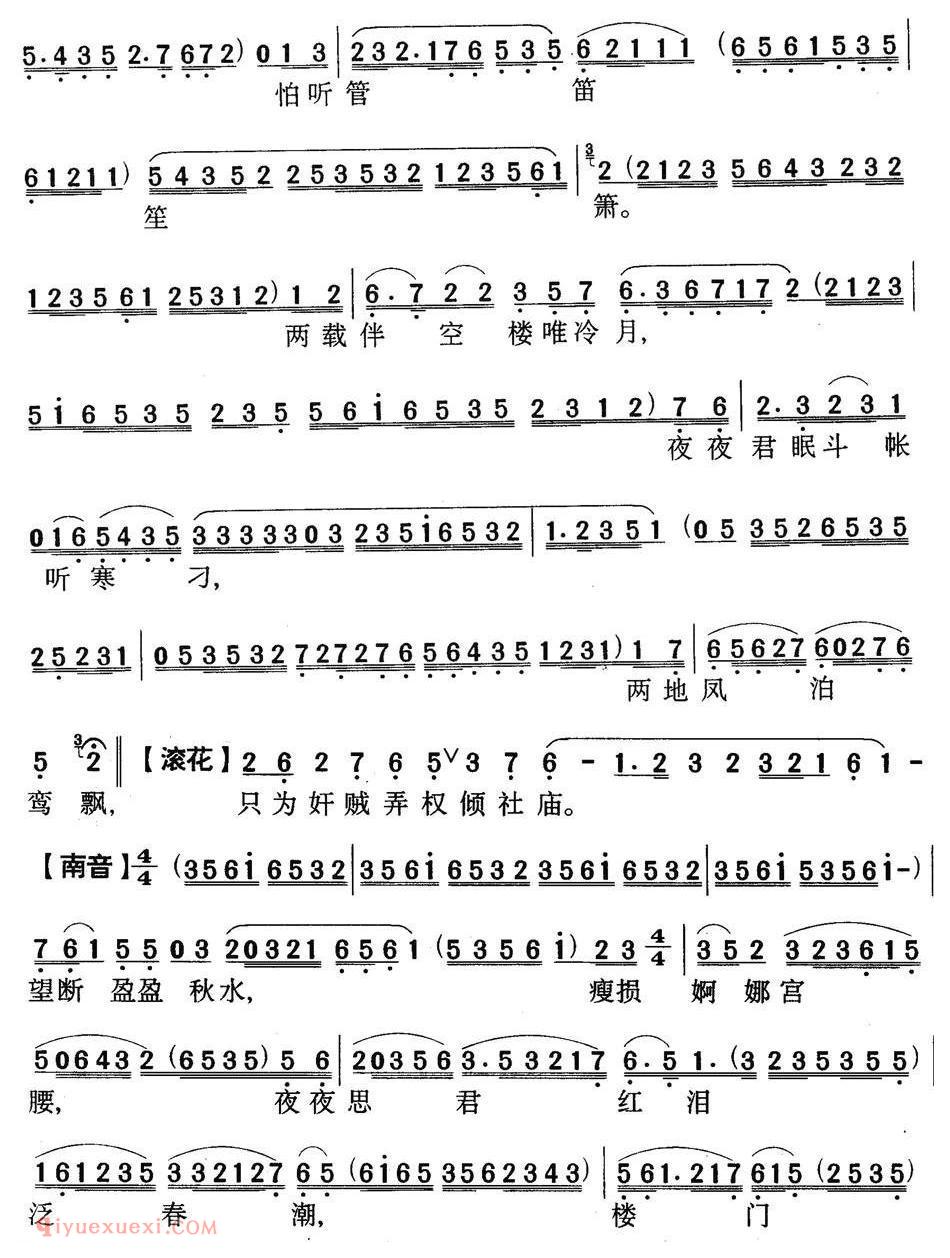 5.435 2.7672) 013 | 232.176 535 62111 (6561535 |
怕听管 笛
61211) 54352 253532 123561 | 3 2 (2123 5643232
笙 箫。
123561 25312) 12 | 6.7 22 357 6.36717 2 (2123
两载伴 空 楼唯冷月,
5i6535 235 56i6535 2312) 76 | 2.3231
夜夜君眠斗 帐
016 5435 3333303 235i6532 | 1.2351 (05 3526535
听寒 刁,
25231 | 0535327 27276 56435 1231) 17 | 65627 60276
两地凤 泊
5 3 2 ‖ 【滚花】 26 2 7 6 5∨3 7 6 - 1.2 3 2 3216 1 -
鸾 飘, 只为奸贼弄权倾社庙。
【南音】 4/4 (356i 6532 | 356i 6532 356i 6532 | 356i 5356i-)
761 55 03 20321 6561 (5356 i) 23 4/4 | 352 323615
望断 盈盈 秋水, 瘦损 婀 娜宫
506432 (6535) 56 | 20356 3.53217 6.5 1.(3 235355)
腰, 夜夜思 君 红 泪
161235 332127 65 (6i65 3562343) | 561.217 615 (2535)
泛 春 潮, 楼 门
qiyuexuexi.com